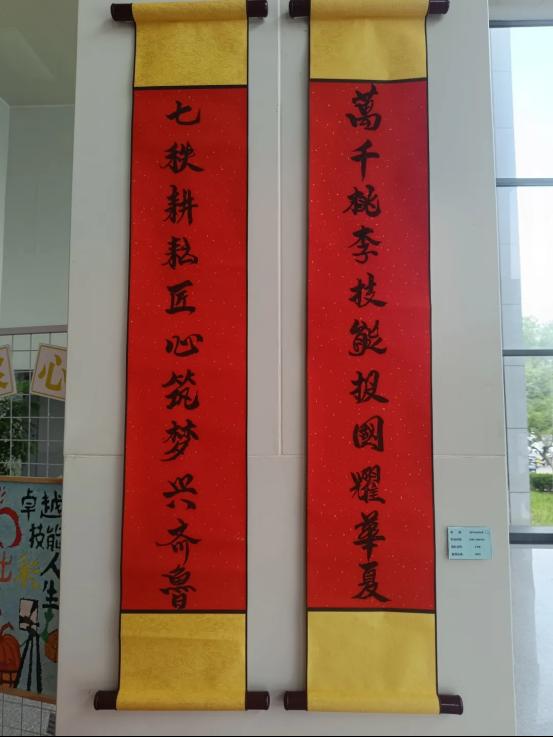 萬千桃李技能报國耀華夏
七秩耕耘匠心筑梦兴斋魯
心
卓越
技能
出彩人生